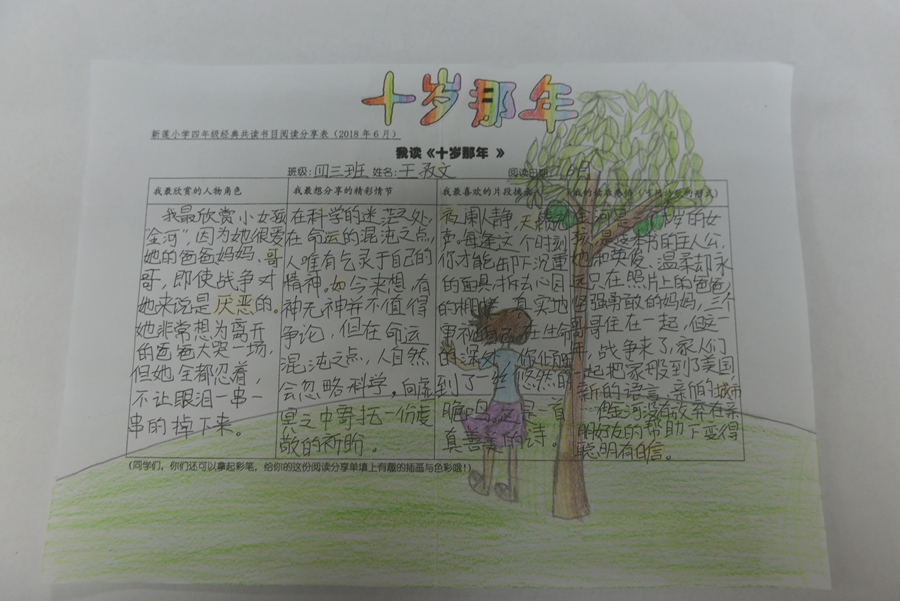 十岁那年
新莲小学四年级经典共读书目阅读分享表（2018年6月）
我读《十岁那年 》
班级: 四三班 姓名: 王孜文 阅读日期
我最欣赏的人物角色
我最欣赏小女孩
“金河”，因为她很爱
她的爸爸妈妈、哥
哥，即使战争对
她来说是厌恶的。
她非常想为离开
的爸爸大哭一场，
但她全都忍着，
不让眼泪一串一
串的掉下来。
我最想分享的精彩情节
在科学的迷茫之处，
在命运的混沌之点，
人唯有乞灵于自己的
精神。如今来想，有
神无神并不值得
争论，但在命运
混沌之点，人自然
会忽略科学，向虚
冥之中寄托一份虔
敬的祈盼。
我最喜欢的片段摘
夜阑人静，天籁
声。每逢这个时刻
你才能卸下沉重
的面具，拆去心园
的栅栏，真实地
审视自己，在生命
的深处，你
到了一丝悠然的
真善美的诗。
岁的女
是这本书的主人公，
她和英俊、温柔却永
远只在照片上的爸爸，
坚强勇敢的妈妈，三个
哥哥住在一起，但这一
年，战争来了，家人们
一起把家搬到了美国
新的语言，亲
河没有放弃在亲
朋好友的帮助下变得
聪明有自信。
(同学们，你们还可以拿起彩笔，给你的这份阅读分享单填上有趣的插画与色彩哦！)